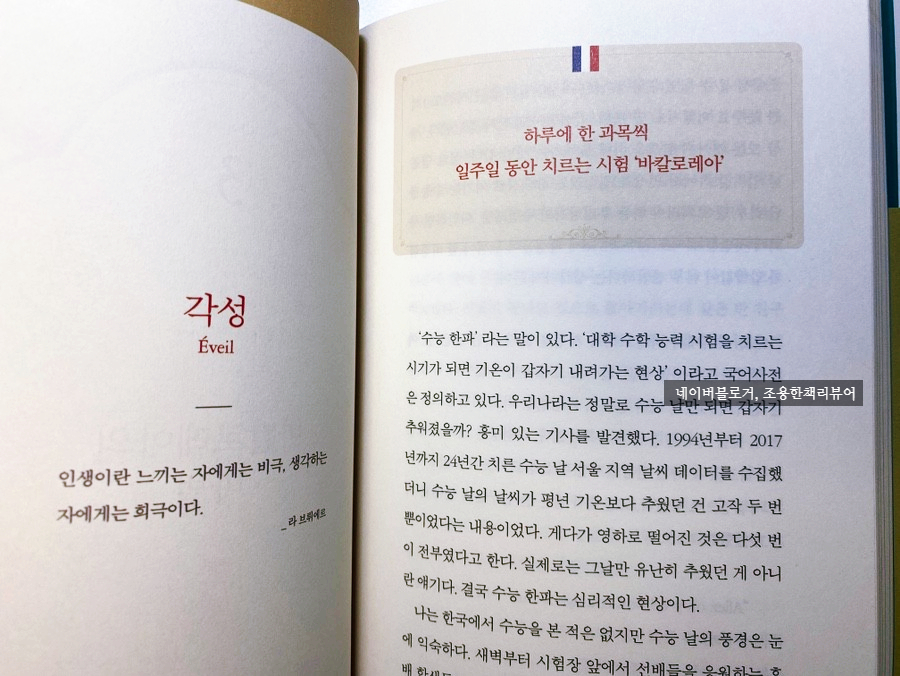 각성
Éveil
인생이란 느끼는 자에게는 비극, 생각하는
자에게는 희극이다.
_ 라 브뤼에르
하루에 한 과목씩
일주일 동안 치르는 시험 ‘바칼로레아’
‘수능 한파’ 라는 말이 있다. ‘대학 수학 능력 시험을 치르는
시기가 되면 기온이 갑자기 내려가는 현상’ 이라고 국어사전
은 정의하고 있다. 우리나라는 정말로 수능 날만 되면 갑자기
추워졌을까? 흥미 있는 기사를 발견했다. 1994년부터 2017
년까지 24년간 치른 수능 날 서울 지역 날씨 데이터를 수집했
더니 수능 날의 날씨가 평년 기온보다 추웠던 건 고작 두 번
뿐이었다는 내용이었다. 게다가 영하로 떨어진 것은 다섯 번
이 전부였다고 한다. 실제로는 그날만 유난히 추웠던 게 아니
란 얘기다. 결국 수능 한파는 심리적인 현상이다.
나는 한국에서 수능을 본 적은 없지만 수능 날의 풍경은 눈
에 익숙하다. 새벽부터 시험장 앞에서 선배들을 응원하는 후
네이버블로거, 조용한책리뷰어